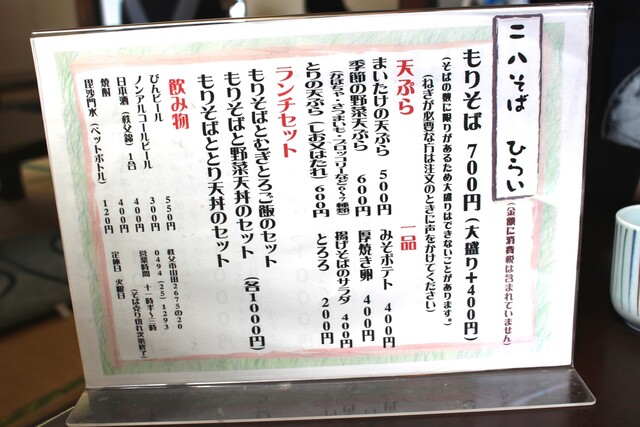 二八そば ひらい
(金額に消費税は含まれていません)
もりそば 700円(大盛り+400円)
(そばの数に限りがあるため大盛りはできないことがあります。)
(ねぎが必要な方は注文のときに声をかけてください)
天ぷら
まいたけの天ぷら 500円
季節の野菜天ぷら 600円
とりの天ぷら(しお又はたれ) 600円
一品
みそポテト 400円
厚焼き卵 400円
揚げそばのサラダ 400円
とろろ 200円
ランチセット
もりそばとむぎとろご飯のセット
もりそばと野菜天丼のセット (各1000円)
もりそばととり天丼のセット
飲み物
びんビール 550円
ノンアルコールビール 300円
日本酒(秩父錦)1合 400円
焼酎 400円
毘沙門水(ペットボトル) 120円
秩父市山田2675の20
0494(25)1293
営業時間 十一時半~三時
(そば売り切れ次第終了)
定休日 火曜日